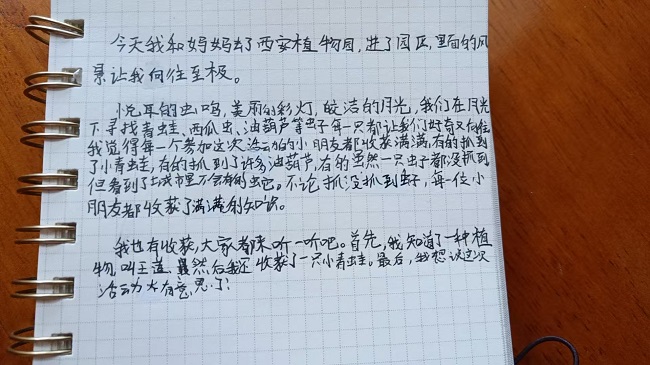 今天我和妈妈去了西安植物园,进了园区,里面的风
景让我向往至极。
悦耳的虫鸣,美丽的彩灯,皎洁的月光,我们在月光
下寻找青蛙、西瓜虫、油葫芦等虫子每一只都让我们好奇又向往
我觉得每一个参加这次活动的小朋友都收获满满,有的抓到
了小青蛙,有的抓到了许多油葫芦,有的虽然一只虫子都没抓到
但看到了城市里不会有的虫。不论抓没抓到虫子,每一位小
朋友都收获了满满的知识。
我也有收获,大家都来听一听吧。首先,我知道了一种植
物,叫王莲,然后我还收获了一只小青蛙。最后,我想说这次
活动太有意思了!